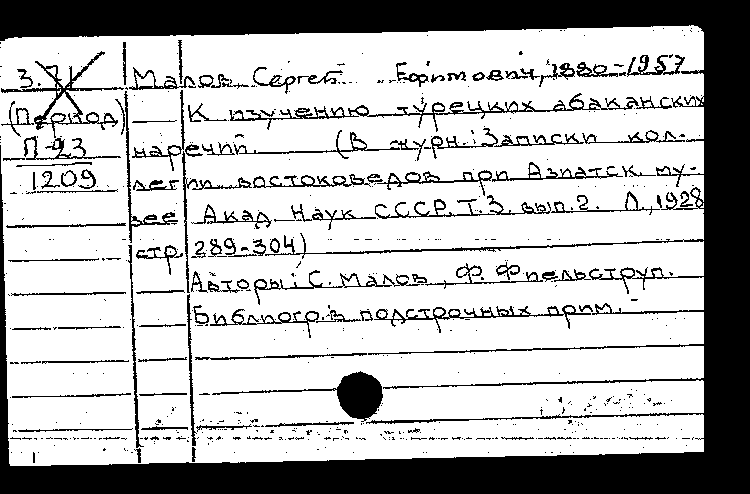 3.71
(Период)
П-23
1209
Малов, Сергей Ефимович, 1880-1957
К изучению турецких абаканских
наречий. (В журн.: Записки кол-
легии востоковедов при Азиатск. му-
зее Акад. Наук СССР. Т.3. вып.2. Л., 1928
стр. 289-304)
Авторы: С. Малов, Ф. Фиельструп.
Библиогр. в подстрочных прим.-